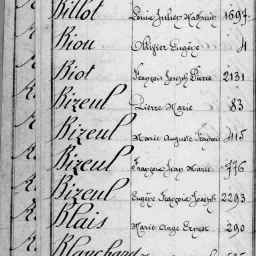 Billot Louis Juliet Mathurin 1697
Biou Ollivier Eugène 4
Biot François Joseph Pierre 2131
Bizeul Pierre Marie 83
Bizeul Marie Auguste 415
Bizeul François Jean Marie 776
Bizeul Eugène François Joseph 2293
Blais Marie Ange Ernest 290
Blanchard